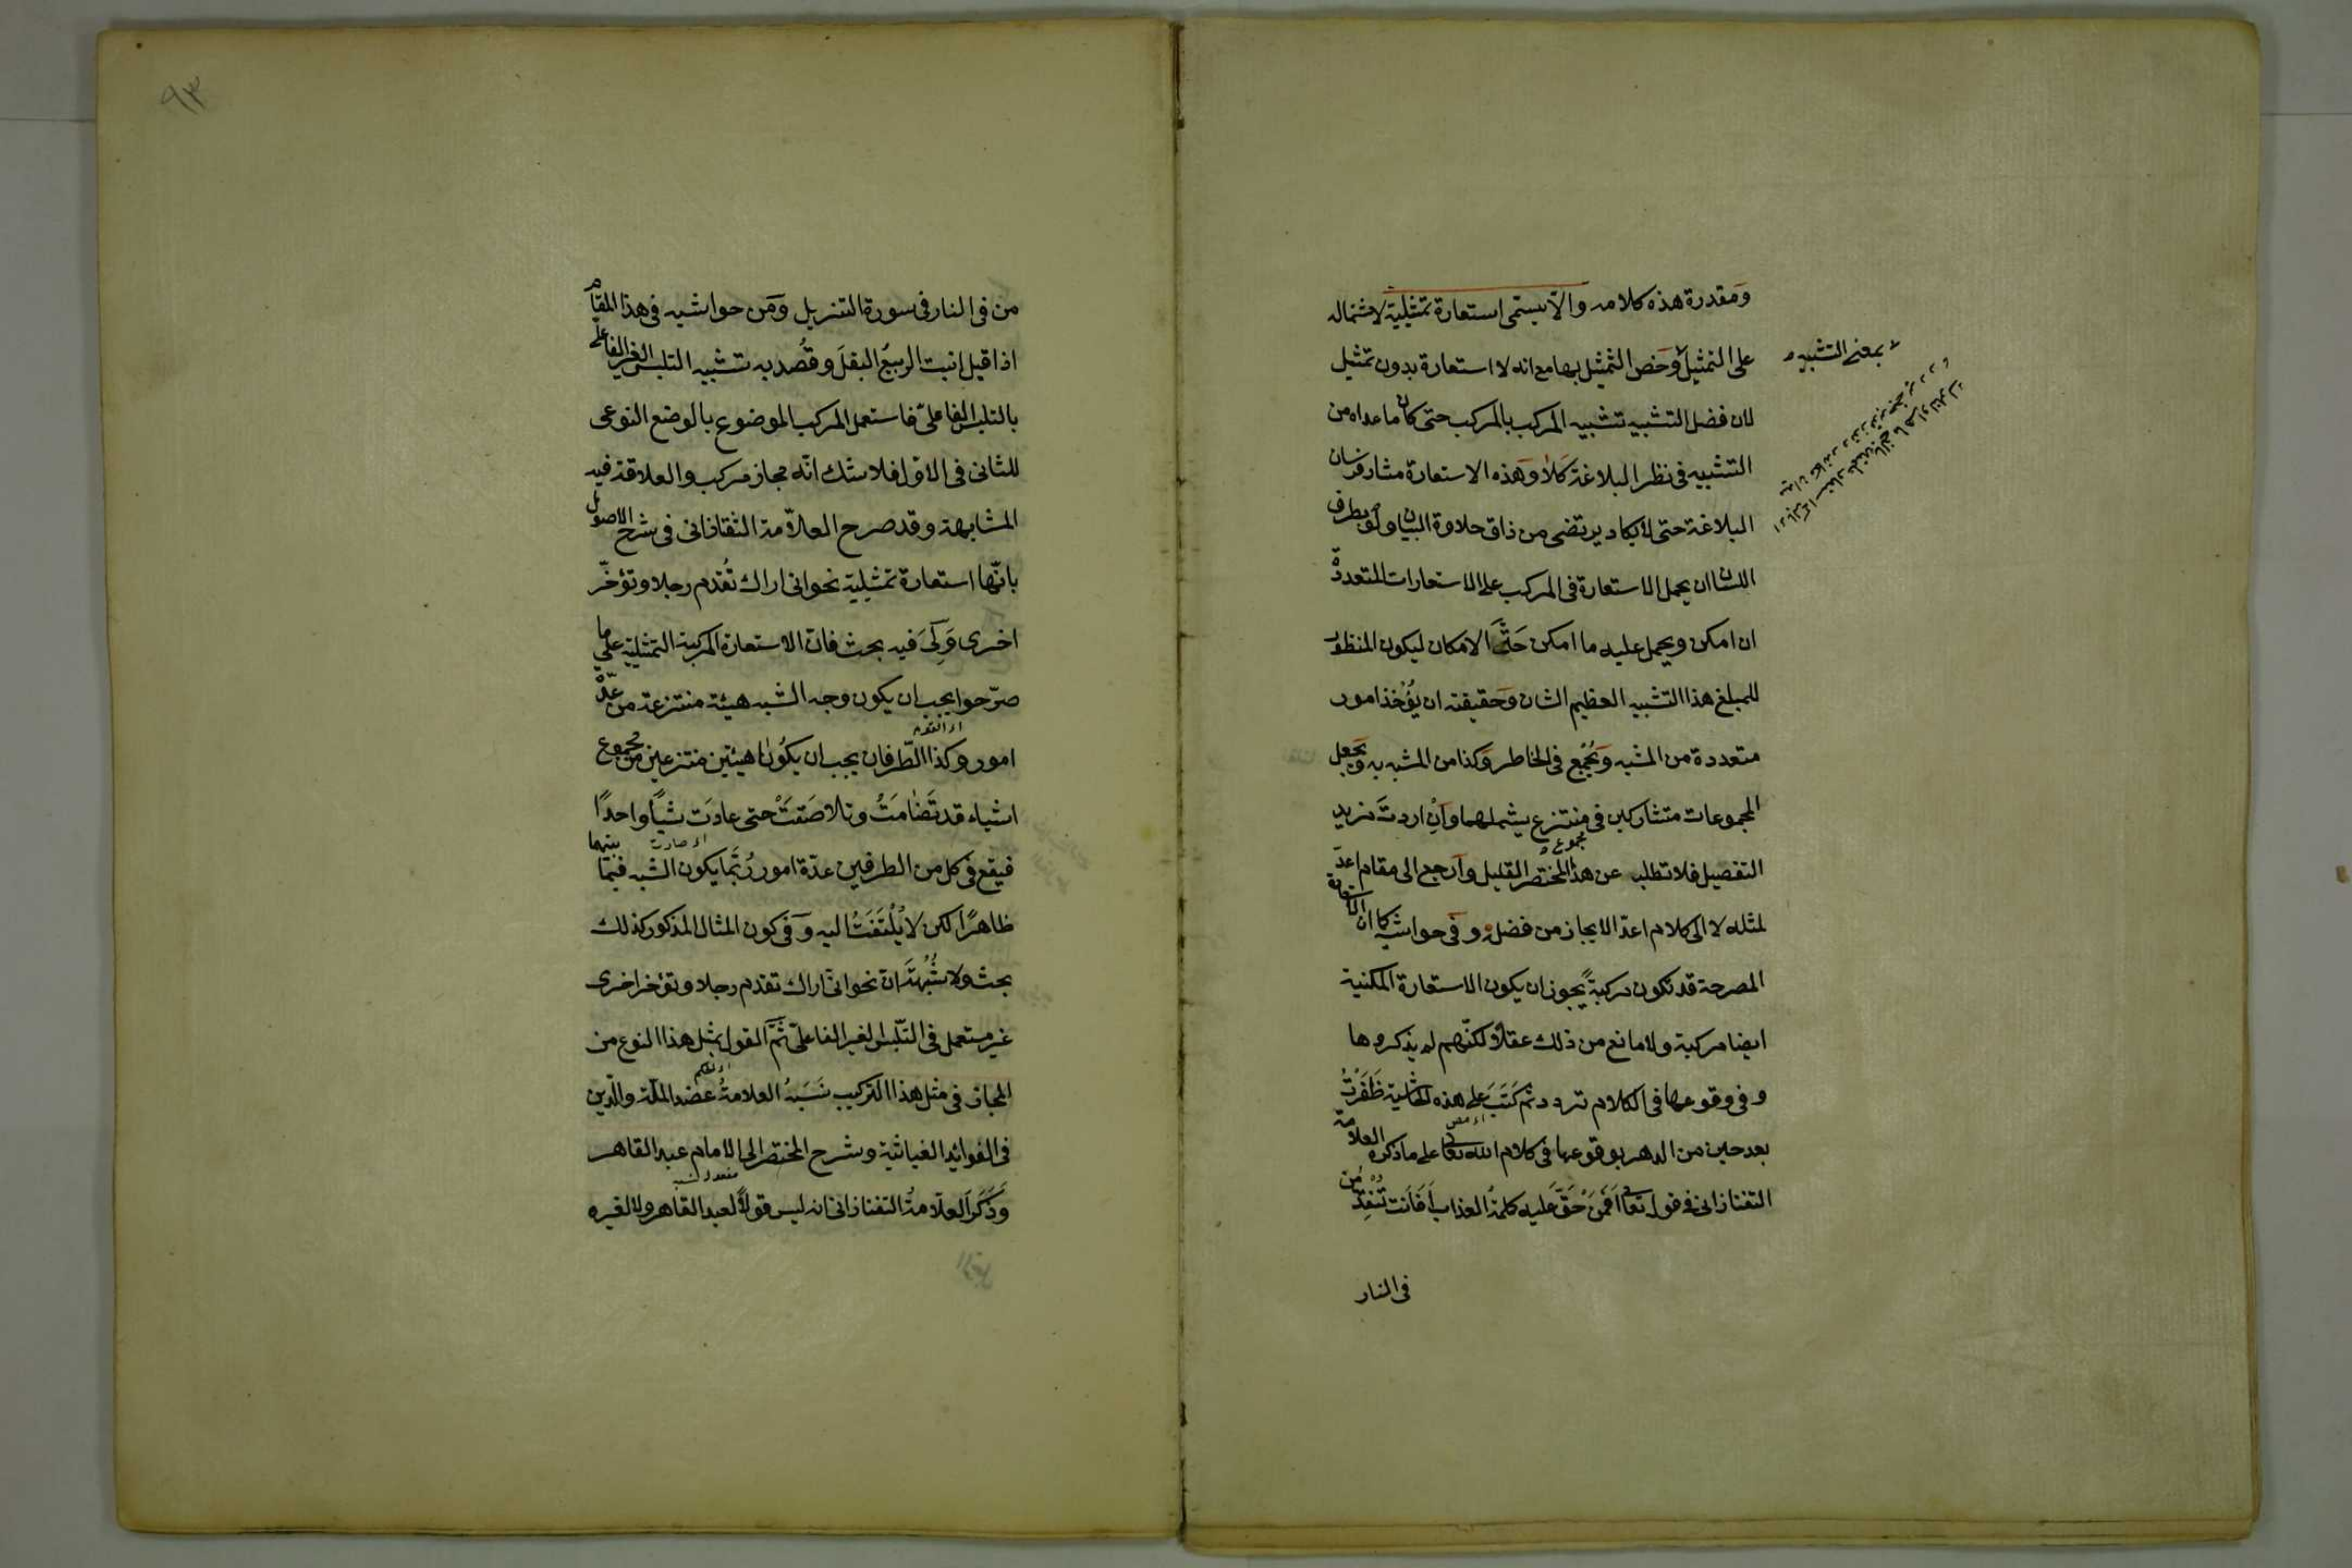 ومقدرة هذه كلامه والا يسمى استعارة تمثيلية لاشتماله
على التمثيل وخص التمثيل بها مع انه لا استعارة بدون تمثيل
بمعنى التشبيه
لان فضل التشبيه تشبيه المركب بالمركب حتى كان ماعداه من
التشبيه في نظر البلاغة كلا وهذه الاستعارة مثار فرسان
البلاغة حتى لا يكاد يرتضى من ذاق حلاوة البيان ولو بطرف
اللسان ان يحمل الاستعارة في المركب على الاستعارات المتعددة
ان امكن ويحمل عليه ما امكن حق الامكان ليكون المنظور
للمبلغ هذا التشبيه العظيم الشان وحقيقته ان يُؤْخَذ امور
متعددة من المشبه وَيُجْمَع في الخاطر وكذا من المشبه به ويجعل
المجموعات متشاركين في منتزع يشملهما وان اردت مزيد
التفصيل فلا تطلبه عن هذا المختصر القليل وارجع الى مقام اعدّ
مجموع
لمثله لا الى كلام اعدّ الايجاز من فضله وفي حواشيه كما ان الاستعارة
المصرحة قد تكون مركبةً يجوز ان يكون الاستعارة المكنية
ايضا مركبة ولا مانع من ذلك عقلاً لكنّهم لم يذكروها
وفي وقوعها في الكلام تردد ثم كَتَبَ على هذه الحاشية ظَفَرْتُ
بعد حين من الدهر بوقوعها في كلام الله تعالى على ما ذكره العلامة
التفتازانى في قوله تعالى اَفَمَنْ حَقَّ عليه كلمة العذاب اَفَاَنت تُنْقِذُ مَن
في النار
٩٣
من في النار في سورة التنزيل ومن حواشيه في هذا المقام
اذا قيل انبت الربيعُ البقلَ وقُصد به تشبيه التلبس الغير الفاعلي
بالتلبس الفاعليّ فاستعمل المركب الموضوع بالوضع النوعى
للثانى في الاول فلا شك انّه مجاز مركب والعلاقة فيه
المشابهة وقد صرح العلاّمة التفتازانى في شرح الاصول
بانّها استعارة تمثيلية نحو انى اراك تُقدم رجلا وتؤخّر
اخرى وَلِىَ فيه بحث فان الاستعارة المركبة التمثيلية على ما
صرّحوا يجب ان يكون وجه الشبه هيئة منتزعة من عدّة
اى القوم
امور وكذا الطّرفان يجب ان يكونا هيئتين منتزعين من مجموع
اشياء قد تَضَامَتْ وتلاصَقَتْ حتى عادَت شيأً واحدًا
اى صارت
فيقع في كل من الطرفين عدّة امور رُبَّما يكون الشبه فيما بينهما
ظاهرًا لكن لا يُلْتَفَتُ اليه وفي كون المثال المذكور كذلك
بحث ولا شُبْهَةَ ان نحو انى اراك تقدم رجلا وتؤخر اخرى
غير مستعمل في التّلبس الغير الفاعليّ ثمّ القول بمثل هذا النوع من
المجاز في مثل هذا التركيب نَسَبَهُ العلامةُ عضد الملّة والدّين
في الفوائد الغياثية وشرح المختصر الى الامام عبد القاهر
وَذَكَرَ العلّامةُ التفتازانى انه ليس قولاً لعبد القاهر ولا لغيره